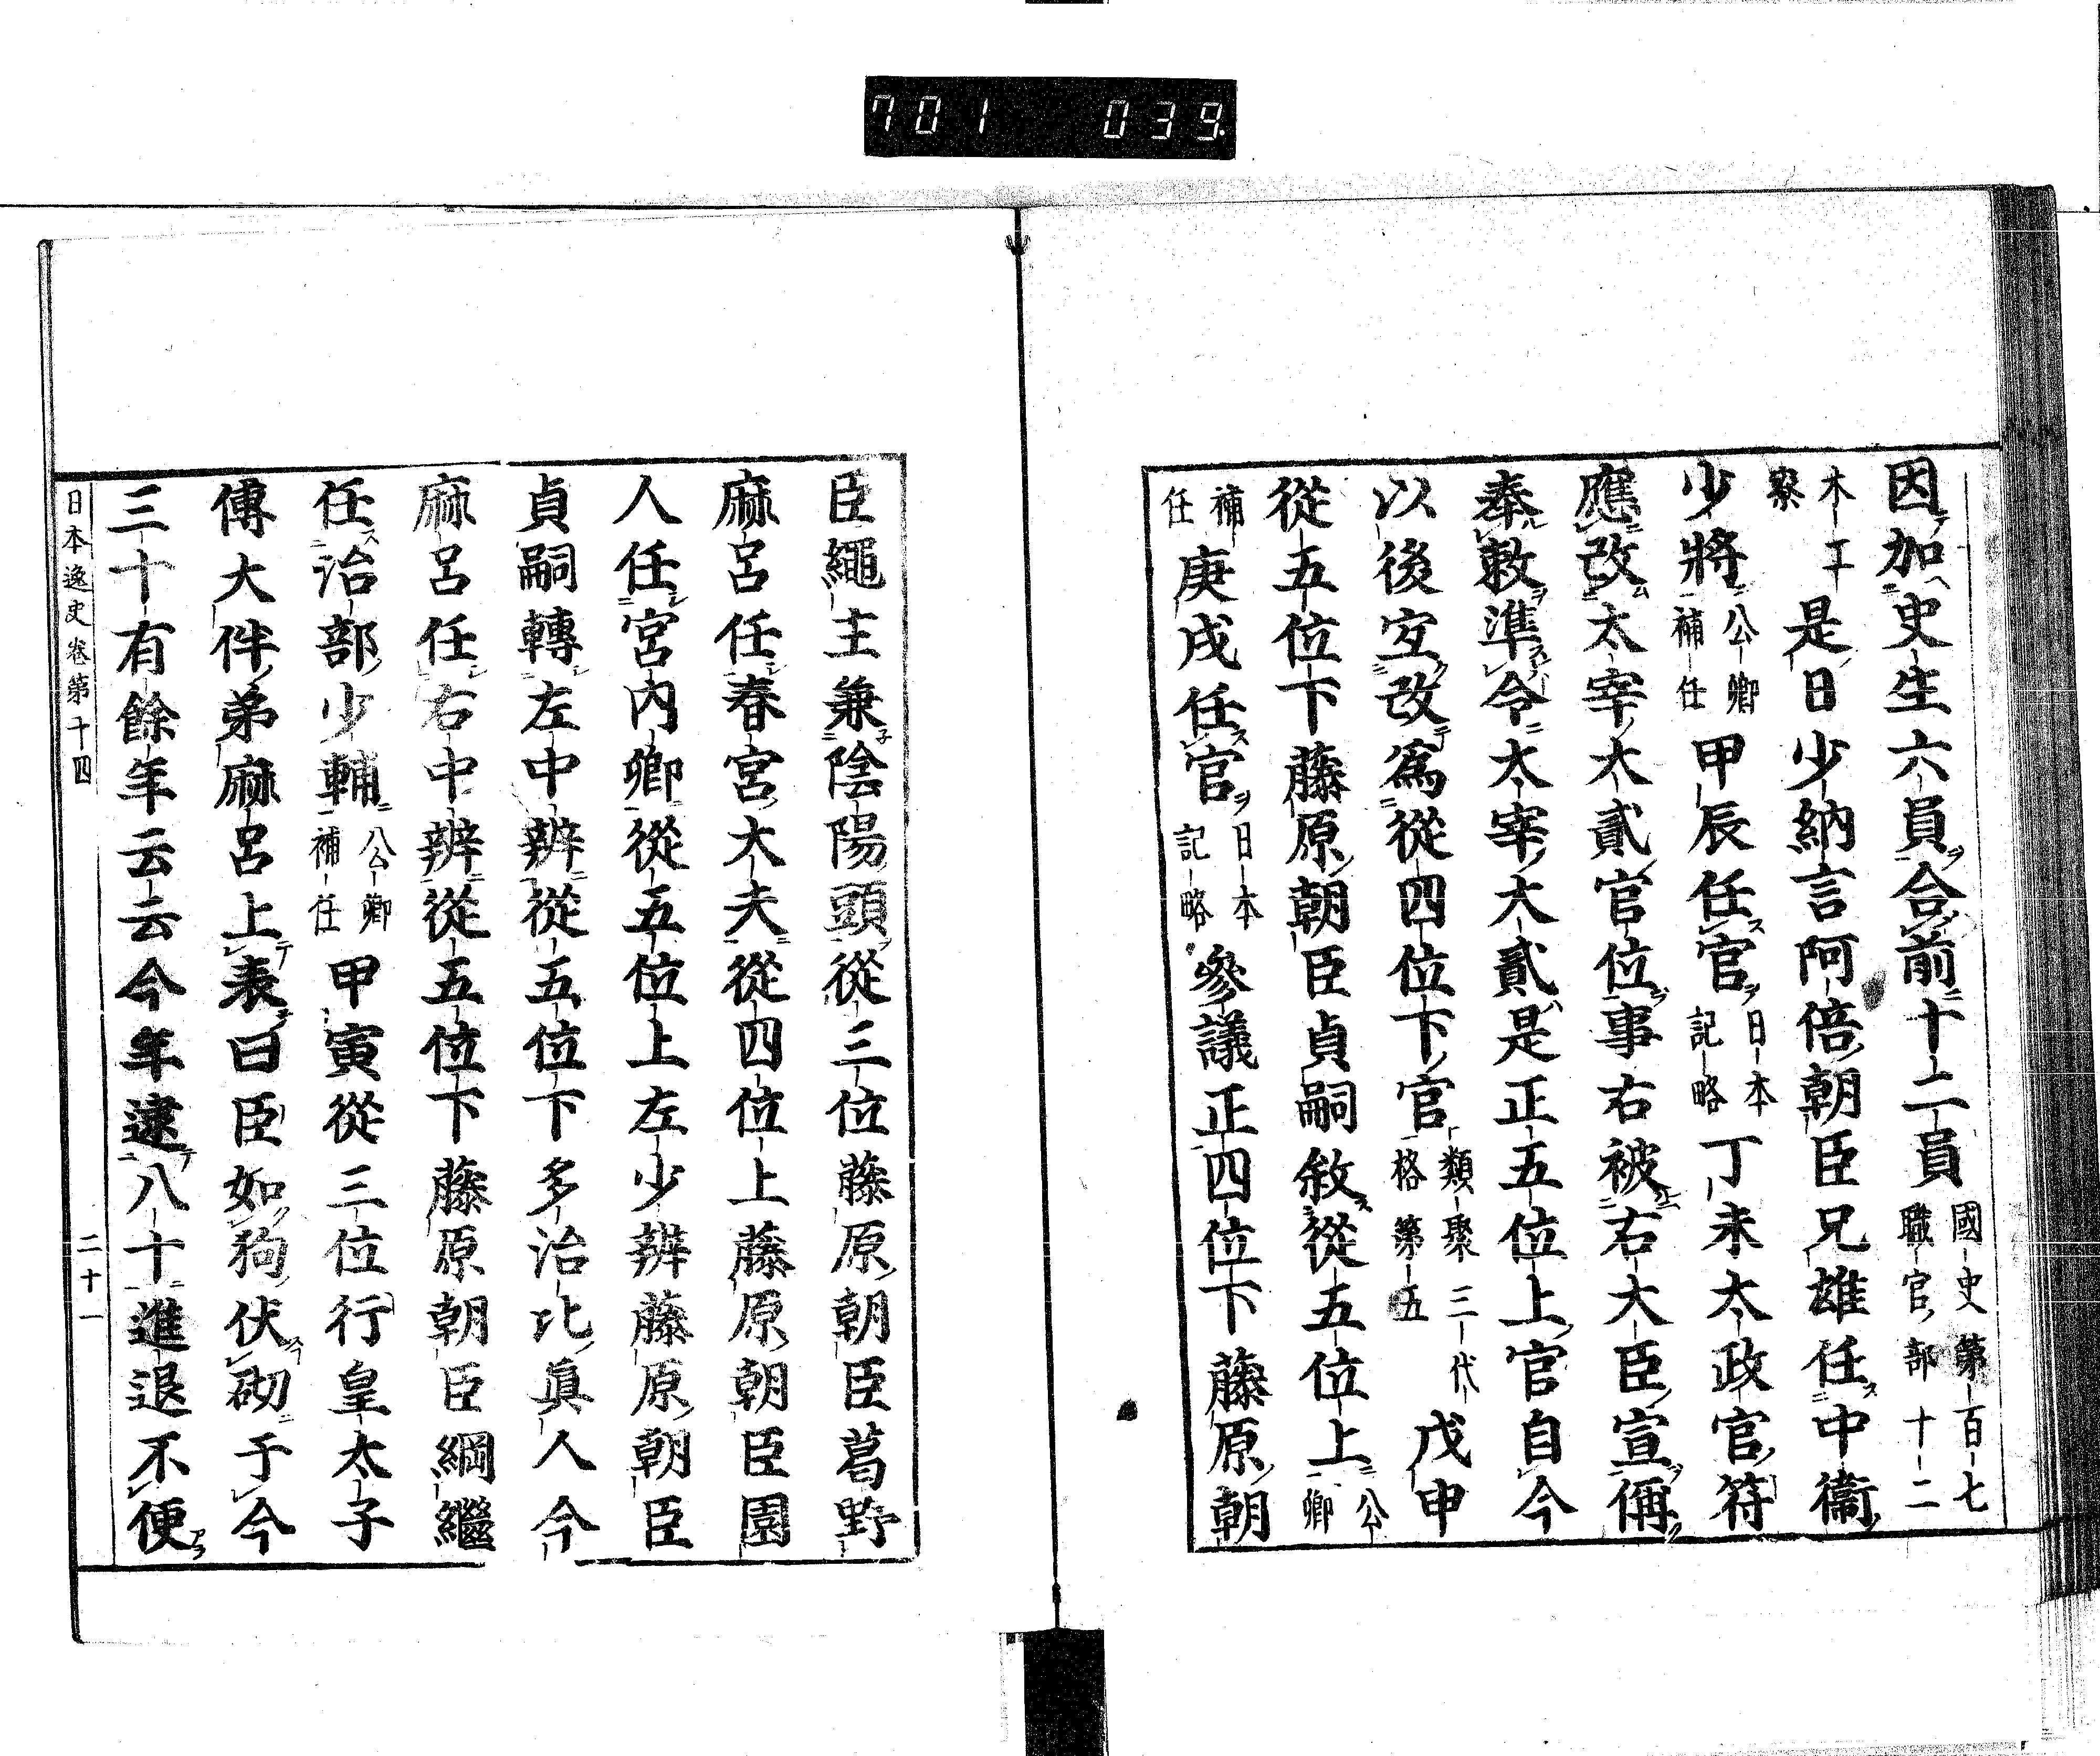 701 039
因加史生六員合前十二員國史第百七職官部十二
木工寮是日少納言阿倍朝臣兄雄任中衞
少將公卿補任甲辰任官日本記略丁未太政官符
應改太宰大貳官位事右被右大臣宣偁
奉敕準令太宰大貳是正五位上官自今
以後宜改爲從四位下官類聚三代格第五戊申
從五位下藤原朝臣貞嗣敘從五位上公卿
補任庚戌任官日本記略參議正四位下藤原朝
臣繩主兼陰陽頭從三位藤原朝臣葛野
麻呂任春宮大夫從四位上藤原朝臣園
人任宮内卿從五位上左少辨藤原朝臣
貞嗣轉左中辨從五位下多治比眞人今
麻呂任右中辨從五位下藤原朝臣綱繼
任治部少輔公卿補任甲寅從三位行皇太子
傅大伴弟麻呂上表曰臣如狗伏砌于今
三十有餘年云云今年逮八十進退不便
日本逸史卷第十四 二十一